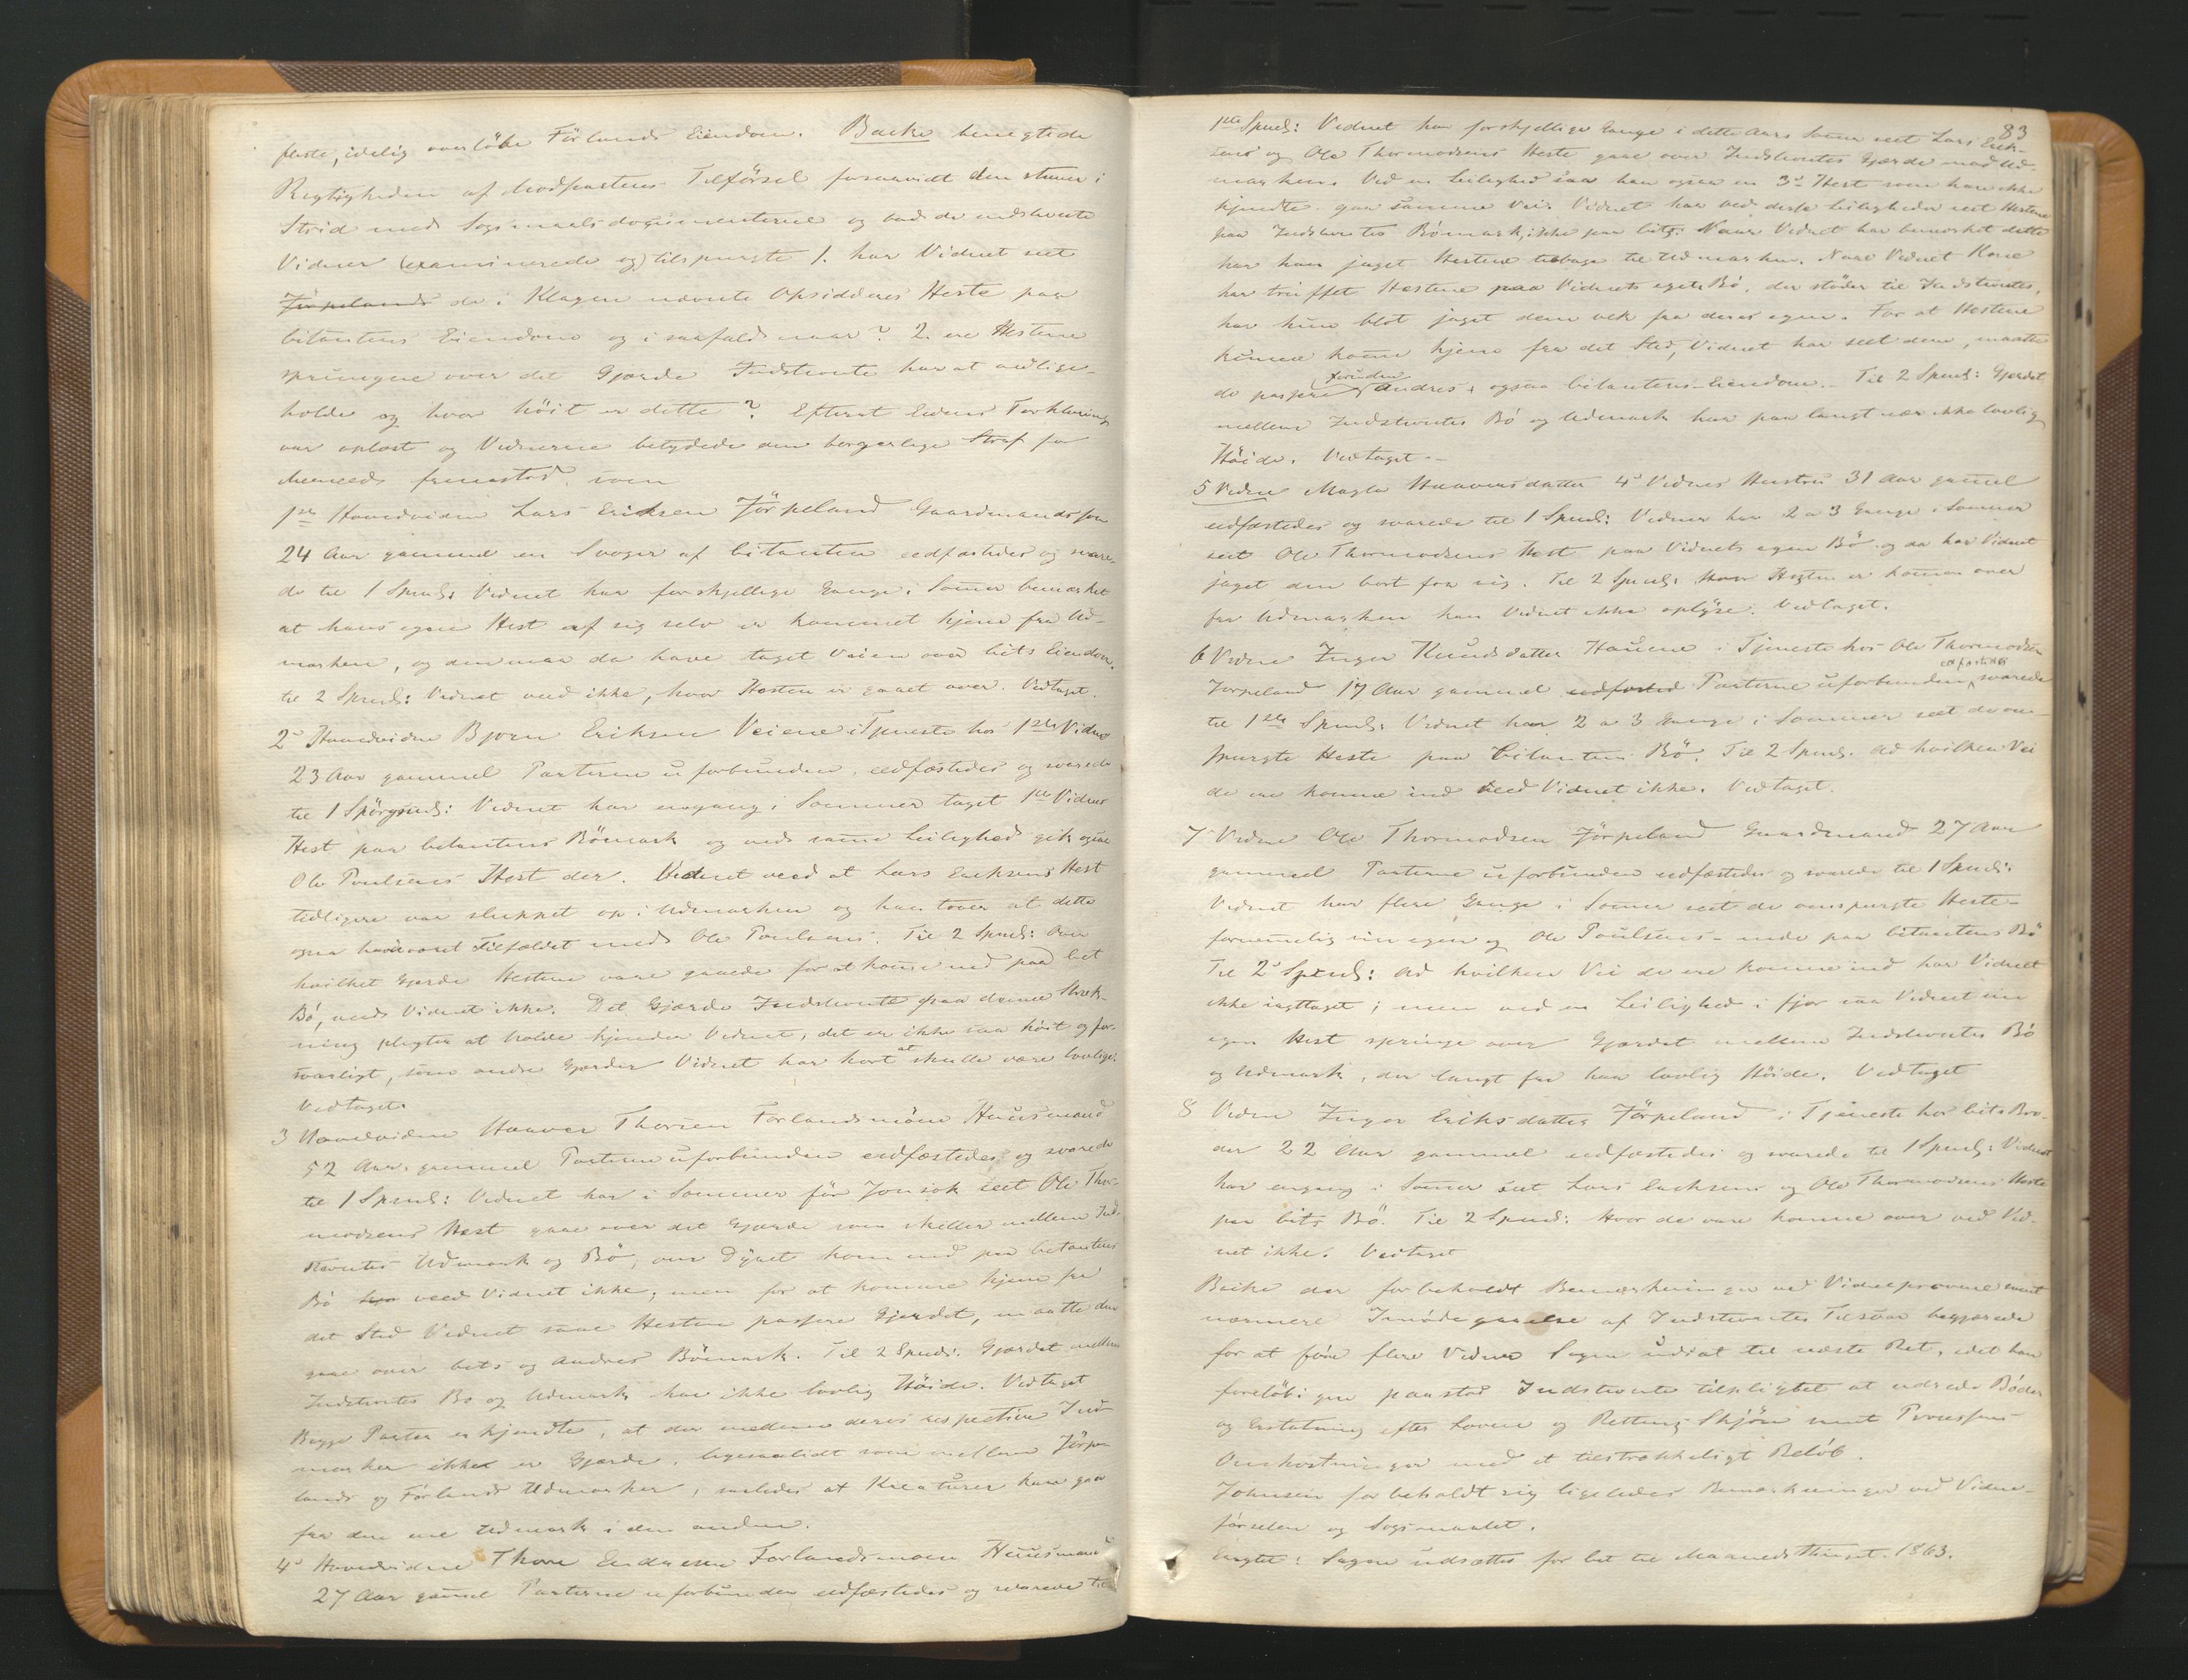 fleste, idelig overløbe Førlands Eiendom. Backe benegtede
Rigtigheden af Modpartens Tilførsel forsaavidt den staaer i
Strid med Sogsmaalsdocumenterne og bad de indstevnte
Vidner (examinerede og) tilspurgte 1. har Vidnet seet
Jørpelands de i Klagen nævnte Opsidderes Heste paa
Citantens Eiendom og i saafald naar? 2. ere Hestene
sprungne over det Gjærde Indstevnte har at vedlige-
holde og hvor høit er dette? Efterat Edens Forklaring
var oplæst og Vidnerne betydede den borgerlige Straf for
Meeneed fremstod som
1ste Hovedvidne Lars Eriksen Jørpeland Gaardmandssøn
24 Aar gammel en Svoger af Citanten eedfæstedes og svare-
de til 1 Spmls: Vidnet har forskjellige Gange i Sommer bemærket
at hans egen Hest af sig selv er kommet hjem fra Ud-
marken, og den maa da have taget Veien over Cits Eiendom.
til 2 Spmls: Vidnet veed ikke, hvor Hesten er gaaet over. Vedtaget.
2d Hovedvidne Bjørn Eriksen Veiene i Tjeneste hos 1ste Vidne
23 Aar gammel Parterne uforbunden, eedfæstedes og svarede
til 1 Spørgsmls: Vidnet har engang i Sommer taget 1ste Vidnes
Hest paa Citantens Bømark og ved samme Leilighed gik ogsaa
Ole Poulsens Hest der. Vidnet veed at Lars Eriksens Hest
tidligere var sluppet op i Udmarken og han troer at dette
ogsaa har været Tilfældet med Ole Poulsens. Til 2 Spmls: Over
hvilket Gjerde Hestene vare gaaede for at komme ned paa Cit
Bø, veed Vidnet ikke. Det Gjærde Indstevnte paa denne Stræk-
ning pligter at holde kjender Vidnet, det er ikke saa høit og for-
svarligt, som andre Gjerder Vidnet har hørt at skulle være lovlige.
Vedtaget.
3 Hovedvidne Haaver Thorsen Forlandsmoen Huusmand
52 Aar gammel Parterne uforbunden eedfæstedes og svarede
til 1 Spmls: Vidnet har i Sommer før Jonsok seet Ole Thor-
modsens Hest gaae over det Gjærde som skiller mellem Ind-
stevntes Udmark og Bø, om Dyret kom ned paa Citantens
Bø hja veed Vidnet ikke; men for at komme hjem fra
det Sted Vidnet saae Hesten passere Gjerdet, maatte den
gaae over Cits og Andres Bømark. Til 2 Spmls: Gjærdet mellem
Indstevntes Bø og Udmark har ikke lovlig Høide. Vedtaget
Begge Parter erkjendte, at der mellem deres respective Ind-
marker ikke er Gjærde, ligesaalidt som mellem Jørpe-
lands og Førlands Udmarker, saaledes at Kreaturer kan gaa
fra den ene Udmark i den anden.
4d Hovedvidne Thore Endresen Forlandsmoen Huusmand
27 Aar gammel Parterne uforbunden eedfæstedes og svarede til
83
1ste Spmls: Vidnet har forskjellige Gange i dette Aars Sommer seet Lars Erik-
sens og Ole Thormodsens Heste gaae over Indstevntes Gjærde mod Ud-
marken. Ved en Leilighed saa han ogsaa en 3de Hest som han ikke
kjendte gaa samme Vei. Vidnet har ved disse Leiligheder seet Hestene
paa Indstevntes Bømark, ikke paa Cits. Naar Vidnet har bemærket dette
har han jaget Hestene tilbage til Udmarken. Naar Vidnets Kone
har truffet Hestene paa Vidnets eget Bø, der støder til Indstevntes,
har hun blot jaget dem vek fra deres egen. For at Hestene
kunne komme hjem fra det Sted, Vidnet har seet dem, maatte
de passere foruden Andres, ogsaa Citantens Eiendom. Til 2 Spmls: Gjerdet
mellem Indstevntes Bø og Udmark har paa langt nær ikke lovlig
Høide. Vedtaget.
5 Vidne Magla Haaversdatter 4d Vidnes Hustru 31 Aar gammel
eedfæstedes og svarede til 1 Spmls: Vidnet har 2 a 3 Gange i Sommer
seet Ole Thormodsens Hest paa Vidnets egen Bø og da har Vidnet
jaget den bort fra sig. Til 2 Spmls: Hvor Hesten er kommen over
fra Udmarken kan Vidnet ikke oplyse. Vedtaget.
6 Vidne Inger Knudsdatter Hauene i Tjeneste hos Ole Thormodsen
Jørpeland 17 Aar gammel eedfæsted Parterne uforbunden, eedfæstedes svarede
til 1ste Spmls: Vidnet har 2 a 3 Gange i Sommer seet de om-
spurgte Heste paa Citantens Bø. Til 2 Spmls. ad hvilken Vei
de ere komne ind veed Vidnet ikke. Vedtaget.
7 Vidne Ole Thormodsen Jørpeland Gaardmand 27 Aar
gammel Parterne uforbunden eedfæstedes og svarede til 1 Spmls:
Vidnet har flere Gange i Sommer seet de omspurgte Heste-
fornemmelig sin egen og Ole Poulsens - nede paa Citantens Bø
Til 2d Spmls: ad hvilken Vei de ere komne ind har Vidnet
ikke iagttaget; men ved en Leilighed i fjor saa Vidnet sin
egen Hest springe over Gjærdet mellem Indstevntes Bø
og Udmark, der langt fra har lovlig Høide. Vedtaget
8 Vidne Inger Eriksdatter Jørpeland i Tjeneste hos Cits Bro-
der 22 Aar gammel eedfæstedes og svarede til 1 Spmls: Vidnet
har engang i Sommer seet Lars Eriksens og Ole Thormodsens Heste
paa Cits Bø. Til 2 Spmls: Hvor de vare komne over veed Vid-
net ikke. Vedtaget
Backe der forbeholdt Bemærkninger ved Vidneprovene samt
nærmere Imødegaaelse af Indstevntes Tilsvar begjærede
for at føre flere Vidner Sagen udsat til næste Ret, idet han
foreløbigen paastod Indstevnte tilpligtet at udrede Bøder
og Erstatning efter Loven og Rettens Skjøn samt Processens
Omkostninger med et tilstrækkeligt Beløb.
Johnsen forbeholdt sig ligeledes Bemærkninger ved Vidne-
førselen og Sogsmaalet.
Eragtet: Sagen udsættes for Cit til Maanedsthinget. 1863.